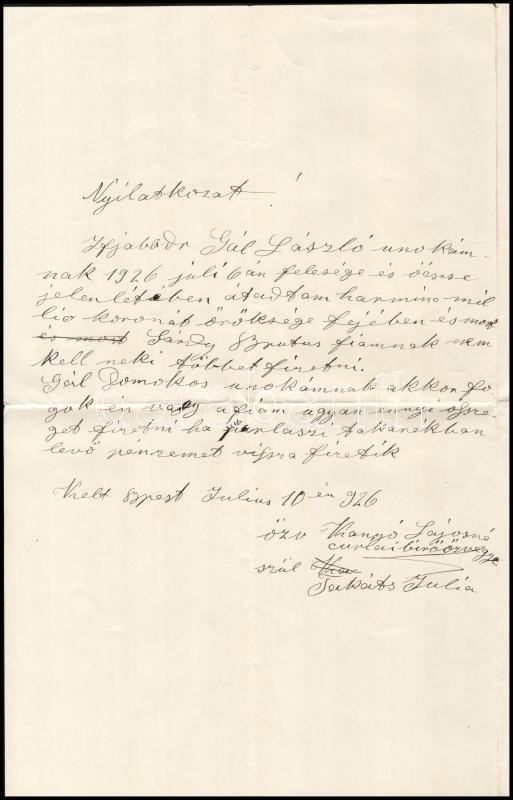 Nyilatkozat!
Ifjabb dr Gál László unokám-
nak 1926 juli 6 án felesége és öcscse
jelenlétében átadtam harminc mil
lió koronát öröksége fejében és most
és most Sárdy Brutus fiamnak nem
kell neki többet fizetni.
Gál Domokos unokámnak akkor fo-
gok én vagy a fiam ugyan ennyi össze-
get fizetni ha takarékban
levő pénzemet vissza fizetik
Kelt Bpest Julius 10 én 926
özv Kanyó Lajosné
curiai biró özvegye
szül
Takáts Julia